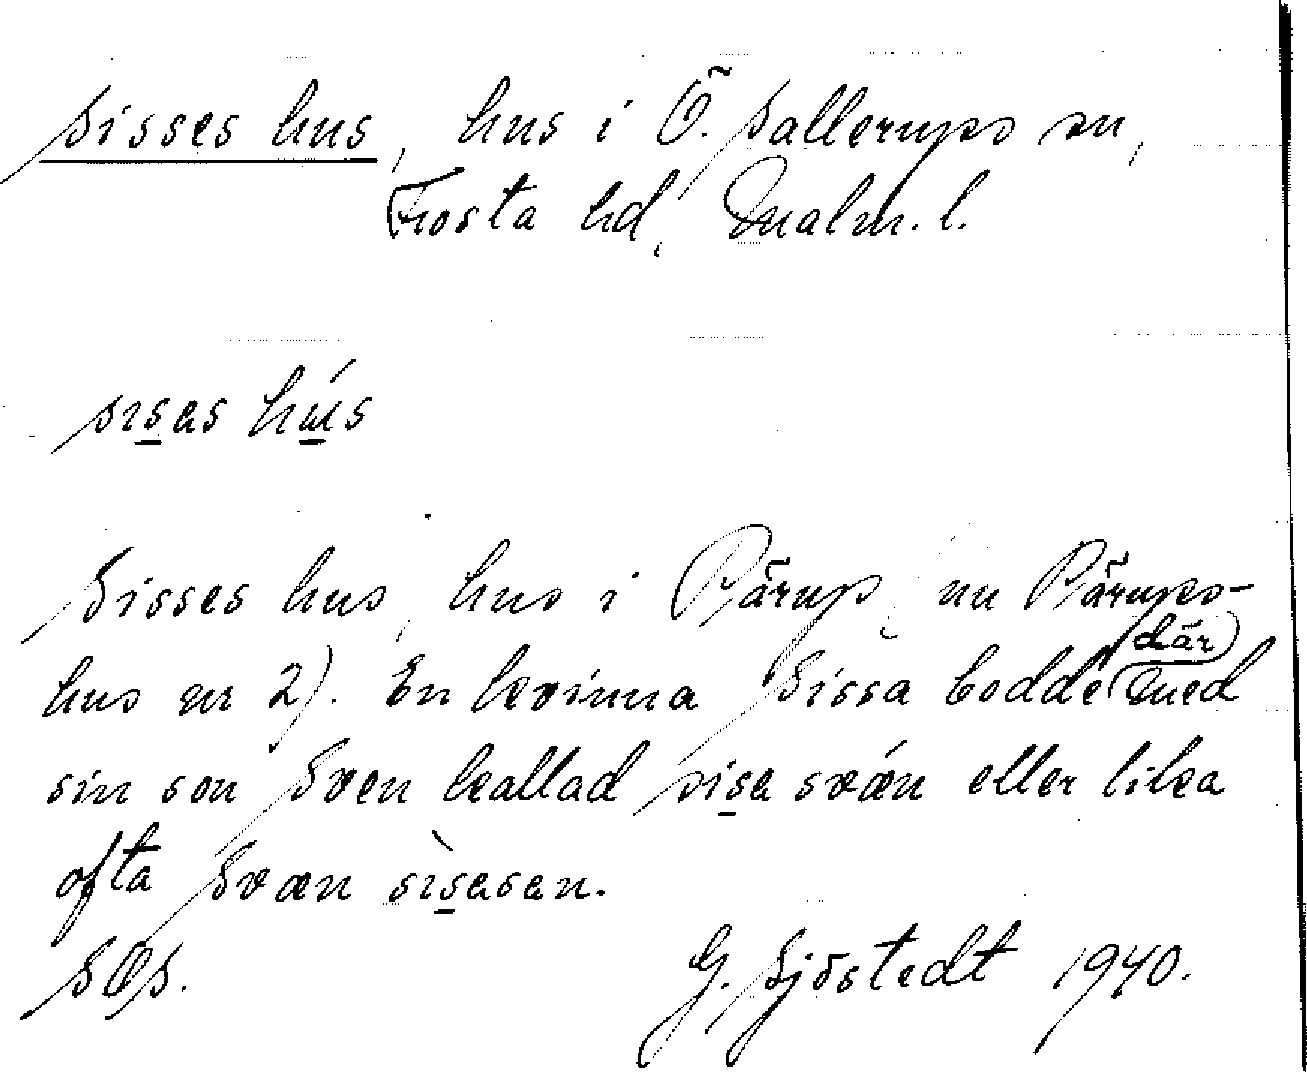 Sisses hus, hus i Ö. Sallerups sn,
Frosta hd, Malm. l.
sısəs hús
Sisses hus, hus i Pärup, nu Pärups-
hus nr 2). En kvinna Sissa bodde där med
sin son Sven kallad sisa svæn eller lika
ofta Svæn sìsasen.
G. Sjöstedt 1940.